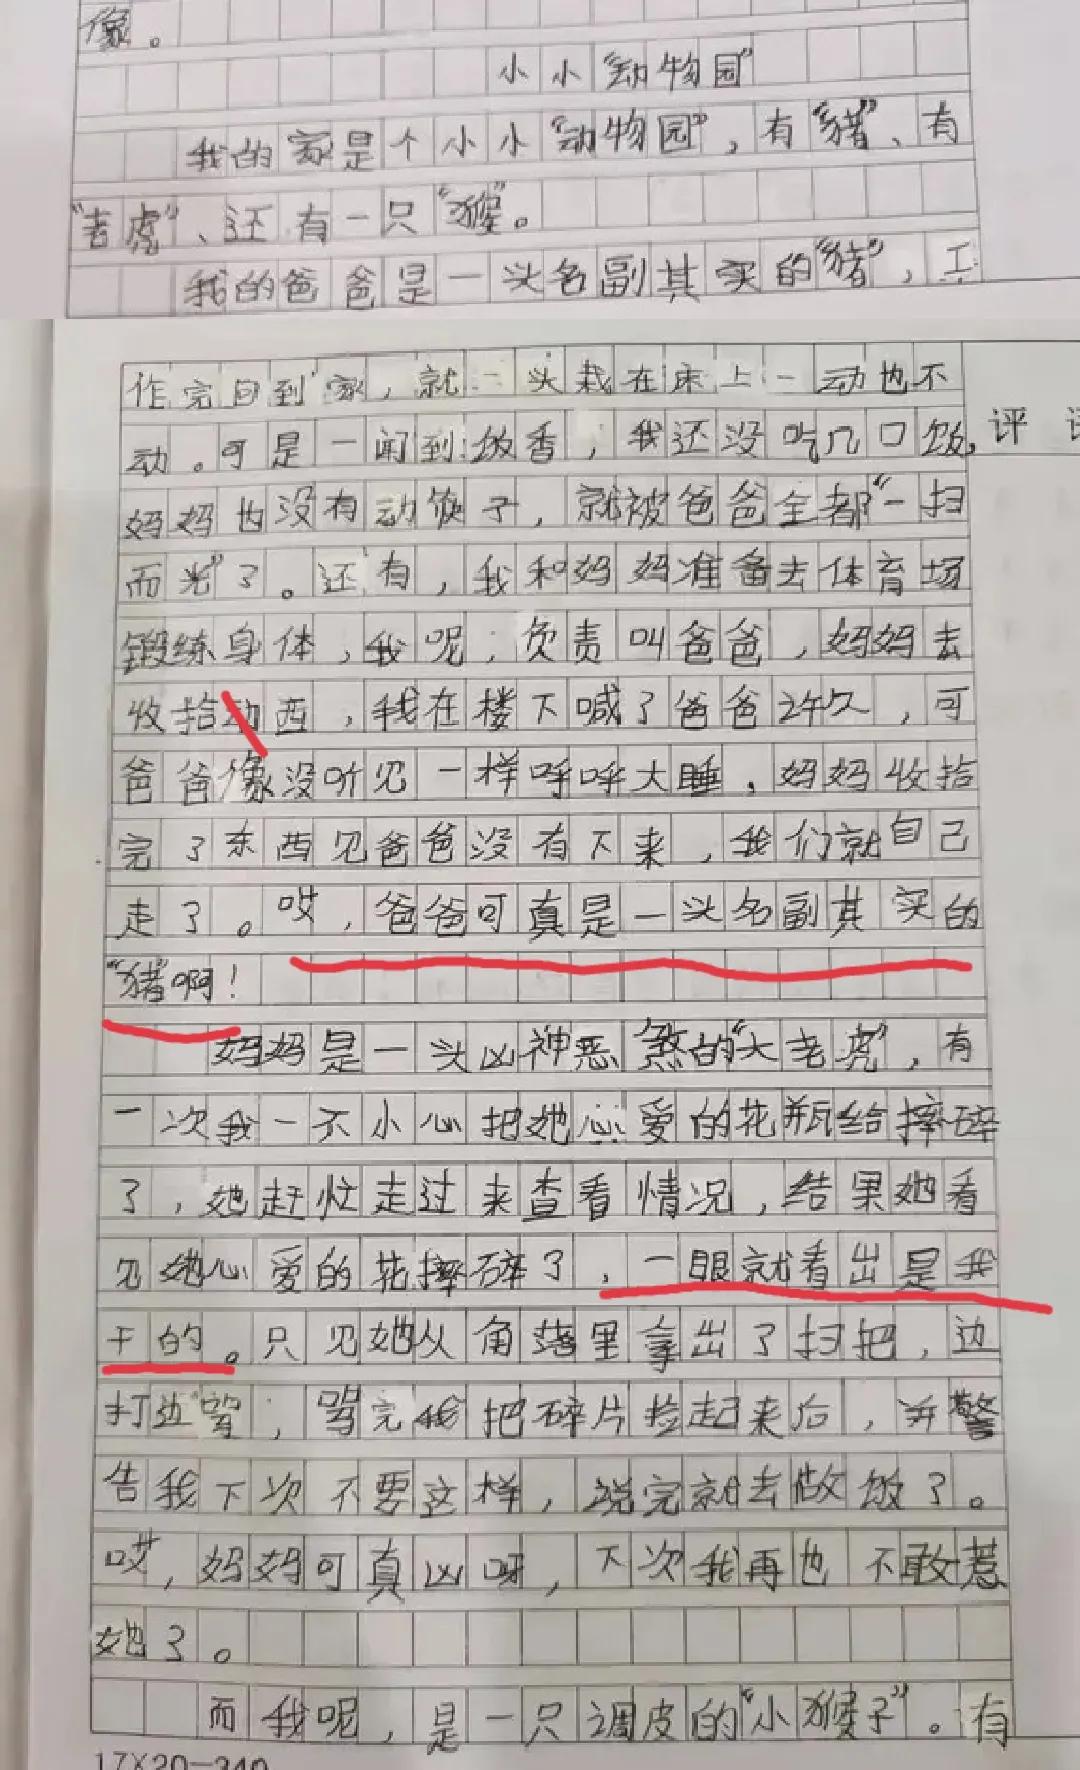 像。
小小“动物园”
我的家是个小小“动物园”，有“猪”、有
“老虎”、还有一只“猴”。
我的爸爸是一头名副其实的“猪”，工
作完回到家，就一头栽在床上一动也不
动。可是一闻到饭香，我还没吃几口饭，
评
妈妈也没有动筷子，就被爸爸全都“一扫
而光”了。还有，我和妈妈准备去体育场
锻练身体，我呢，负责叫爸爸，妈妈去
收拾动西，我在楼下喊了爸爸许久，可
爸爸像没听见一样呼呼大睡，妈妈收拾
完了东西见爸爸没有下来，我们就自己
走了。哎，爸爸可真是一头名副其实的
“猪”啊！
妈妈是一头凶神恶煞的“大老虎”，有
一次我一不小心把她心爱的花瓶给摔碎
了，她赶忙走过来查看情况，结果她看
见她心爱的花摔碎了，一眼就看出是我
干的。只见她从角落里拿出了扫把，边
打边骂，骂完我把碎片捡起来后，并警
告我下次不要这样，说完就去做饭了。
哎，妈妈可真凶呀，下次我再也不敢惹
她了。
而我呢，是一只调皮的“小猴子”。有
17X20=340